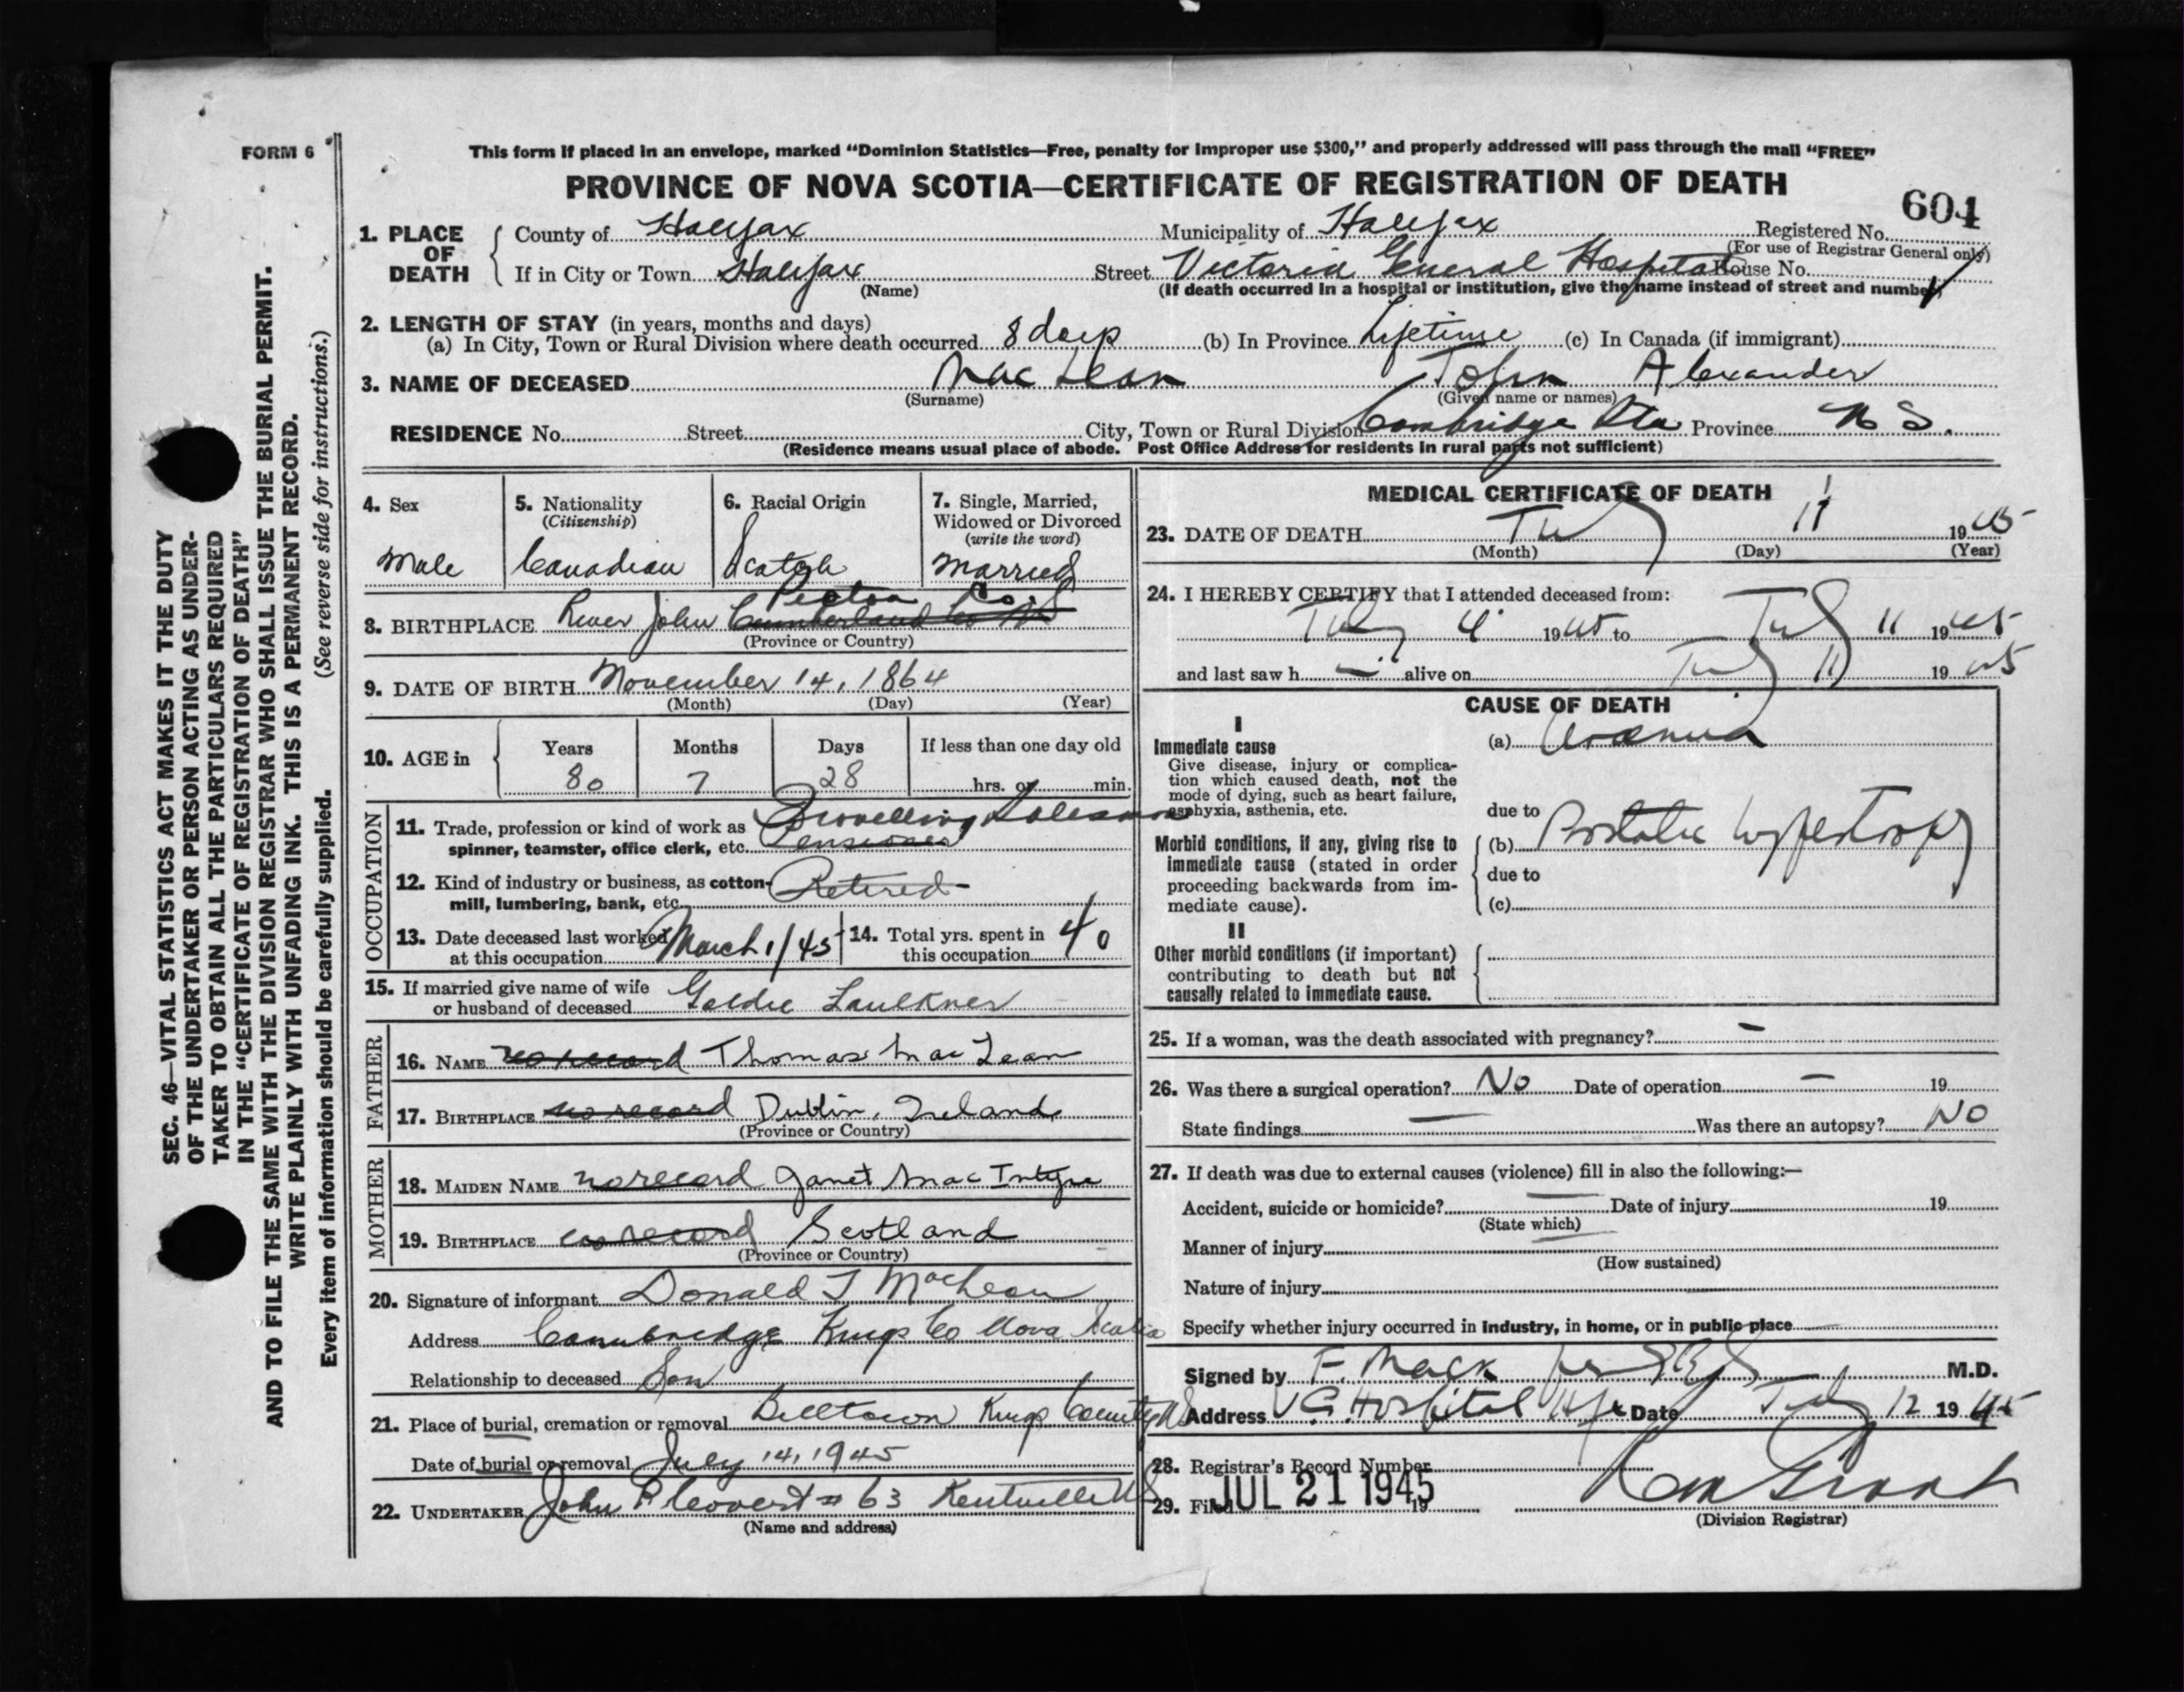 FORM 6
This form if placed in an envelope, marked "Dominion Statistics—Free, penalty for improper use $300," and properly addressed will pass through the mail "FREE"
PROVINCE OF NOVA SCOTIA—CERTIFICATE OF REGISTRATION OF DEATH
604
1. PLACE OF DEATH { County of Halifax Municipality of Halifax Registered No.
(For use of Registrar General only)
If in City or Town Halifax Street Victoria General Hospital House No.
(Name) (If death occurred in a hospital or institution, give the name instead of street and number)
2. LENGTH OF STAY (in years, months and days)
(a) In City, Town or Rural Division where death occurred 8 days (b) In Province Lifetime (c) In Canada (if immigrant)
3. NAME OF DECEASED MacLean John Alexander
(Surname) (Given name or names)
RESIDENCE No. Street City, Town or Rural Division Cambridge Sta Province N S.
(Residence means usual place of abode. Post Office Address for residents in rural parts not sufficient)
4. Sex 5. Nationality 6. Racial Origin 7. Single, Married,
(Citizenship) Widowed or Divorced
(write the word)
Male Canadian Scotch Married
Pictou Co.
8. BIRTHPLACE River John Cumberland Co NS
(Province or Country)
9. DATE OF BIRTH November 14, 1864
(Month) (Day) (Year)
10. AGE in { Years Months Days If less than one day old
80 7 28 hrs. or min.
OCCUPATION
11. Trade, profession or kind of work as Travelling Salesman
spinner, teamster, office clerk, etc. Pensioner
12. Kind of industry or business, as cotton- Retired
mill, lumbering, bank, etc.
13. Date deceased last worked March 1/45 14. Total yrs. spent in 40
at this occupation this occupation
15. If married give name of wife Goldie Faulkner
or husband of deceased
FATHER
16. NAME no record Thomas MacLean
17. BIRTHPLACE no record Dublin, Ireland
(Province or Country)
MOTHER
18. MAIDEN NAME no record Janet MacIntyre
19. BIRTHPLACE no record Scotland
(Province or Country)
20. Signature of informant Donald T MacLean
Address Cambridge Kings Co Nova Scotia
Relationship to deceased Son
21. Place of burial, cremation or removal Billtown Kings County NS
Date of burial or removal July 14, 1945
22. UNDERTAKER John P # 63 Kentville NS
(Name and address)
MEDICAL CERTIFICATE OF DEATH
23. DATE OF DEATH July 11 1945
(Month) (Day) (Year)
24. I HEREBY CERTIFY that I attended deceased from:
July 4 1945 to July 11 1945
and last saw h alive on July 11 1945
CAUSE OF DEATH
I
Immediate cause (a) Uraemia
Give disease, injury or complica-
tion which caused death, not the
mode of dying, such as heart failure,
asphyxia, asthenia, etc. due to
Morbid conditions, if any, giving rise to (b) Prostatic hypertrophy
immediate cause (stated in order
proceeding backwards from im- due to
mediate cause). (c)
II
Other morbid conditions (if important)
contributing to death but not
causally related to immediate cause.
25. If a woman, was the death associated with pregnancy? —
26. Was there a surgical operation? No Date of operation — 19
State findings — Was there an autopsy? No
27. If death was due to external causes (violence) fill in also the following:—
Accident, suicide or homicide? — Date of injury 19
(State which)
Manner of injury
(How sustained)
Nature of injury
Specify whether injury occurred in industry, in home, or in public place
Signed by F. Mack M.D.
Address V G Hospital Hfx Date July 12 1945
28. Registrar's Record Number
29. Filed JUL 21 1945 19
(Division Registrar)
SEC. 46—VITAL STATISTICS ACT MAKES IT THE DUTY
OF THE UNDERTAKER OR PERSON ACTING AS UNDER-
TAKER TO OBTAIN ALL THE PARTICULARS REQUIRED
IN THE "CERTIFICATE OF REGISTRATION OF DEATH"
AND TO FILE THE SAME WITH THE DIVISION REGISTRAR WHO SHALL ISSUE THE BURIAL PERMIT.
WRITE PLAINLY WITH UNFADING INK. THIS IS A PERMANENT RECORD.
Every item of information should be carefully supplied. (See reverse side for instructions.)